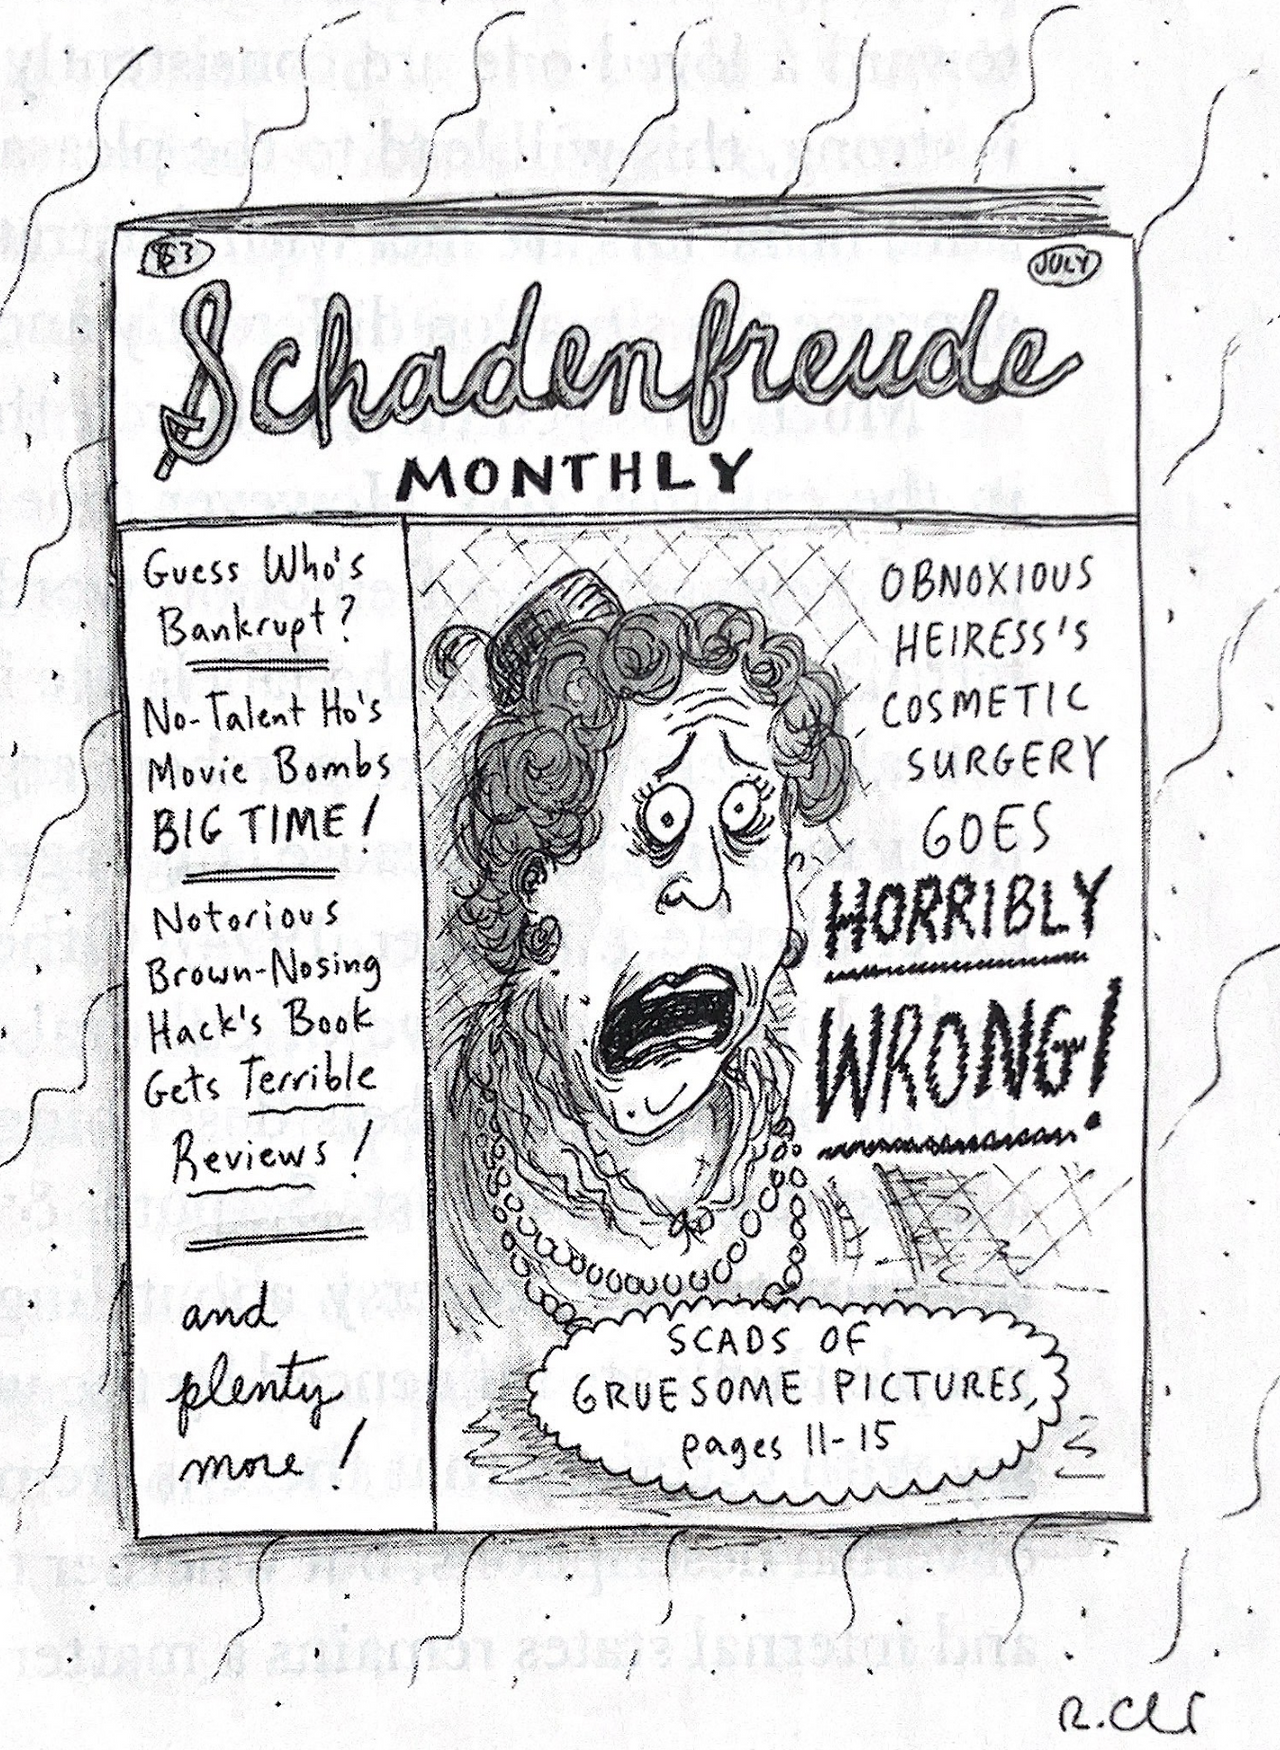 $3
JULY
Schadenfreude
MONTHLY
Guess Who's
Bankrupt?
No-Talent Ho's
Movie Bombs
BIG TIME!
Notorious
Brown-Nosing
Hack's Book
Gets Terrible
Reviews!
and
plenty
more!
OBNOXIOUS
HEIRESS'S
COSMETIC
SURGERY
GOES
HORRIBLY
WRONG!
SCADS OF
GRUESOME PICTURES,
pages 11-15
R. Ch